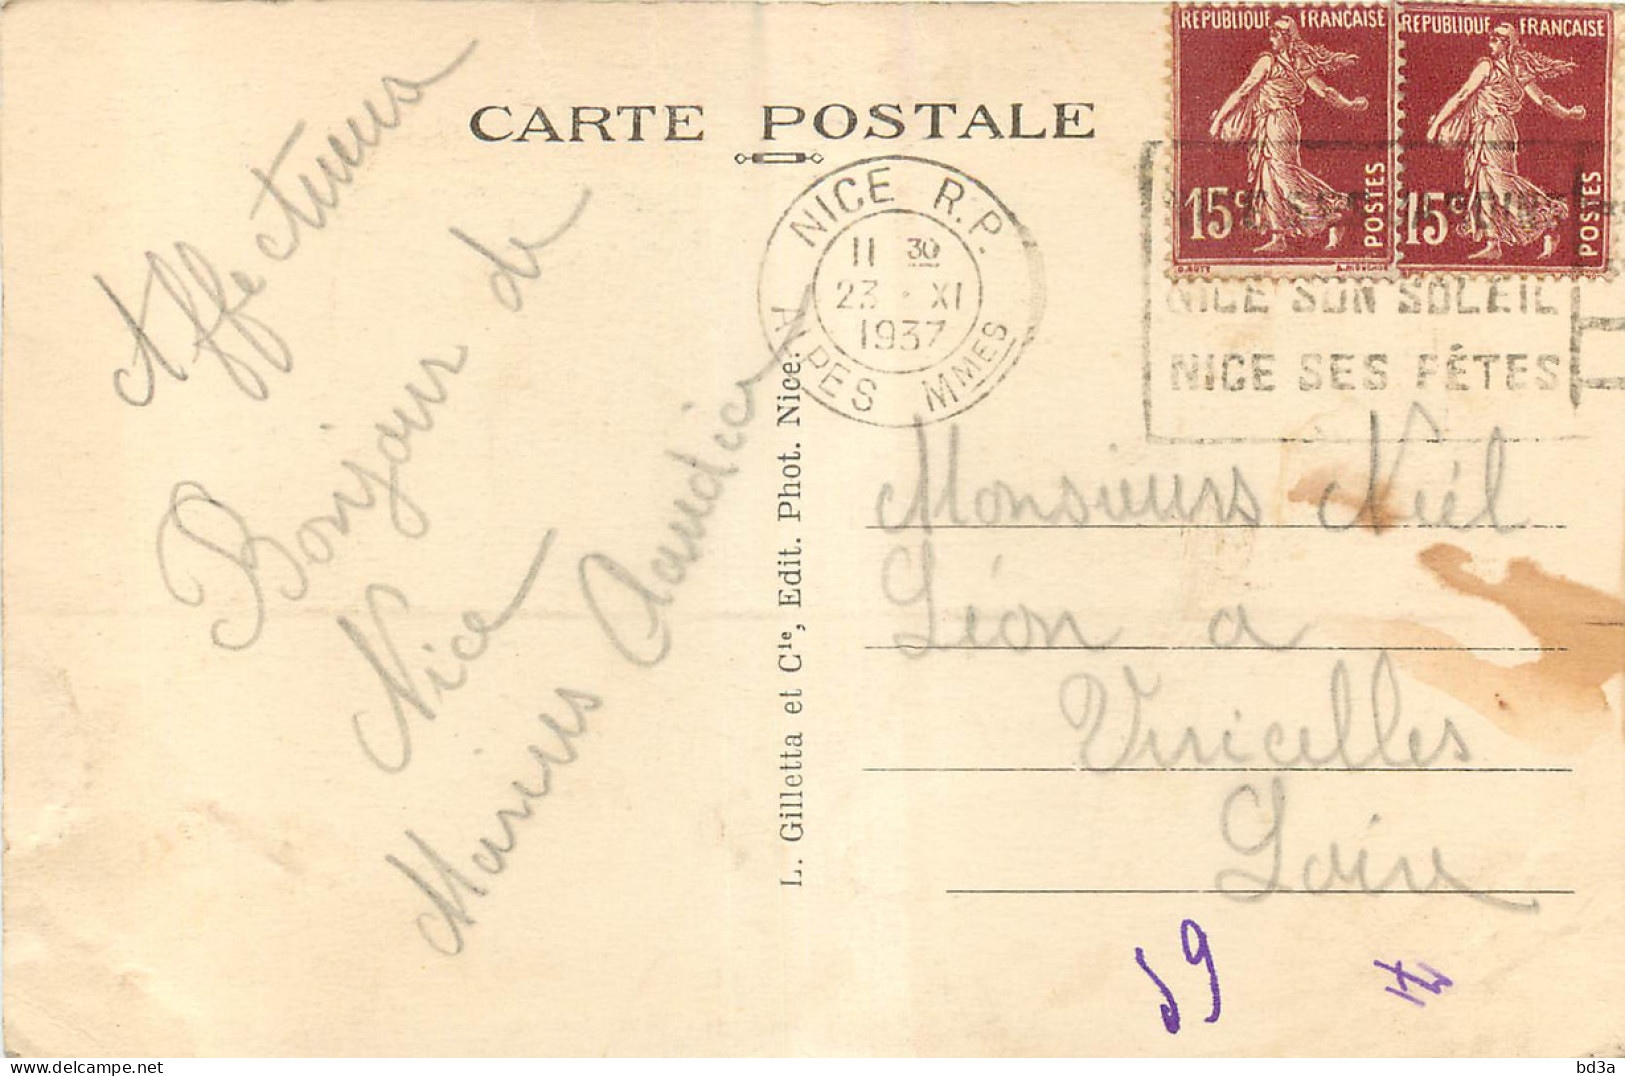 CARTE POSTALE
REPUBLIQUE FRANÇAISE
15c
POSTES
REPUBLIQUE FRANÇAISE
15c
POSTES
NICE R.P.
11 30
23 · XI
1937
ALPES MMES
NICE SON SOLEIL
NICE SES FÊTES
Affectueux
Bonjour de
Nice
Marius
L. Gilletta et Cie, Edit. Phot. Nice.
Monsieurs Niél
Léon a
Viricelles
Loire
59
bd3a